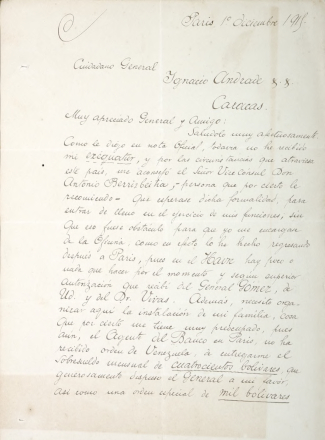 Paris 1º Diciembre 191
Ciudadano General
Ignacio Andrade & &
Caracas.
Muy apreciado General y Amigo:
Salúdolo muy afectuosamente.
Como le digo en nota oficial, todavía no he recibido
mi exequatur, y por las circunstancias que atraviesa
este país, me aconsejó el señor Vice Consul Don
Antonio Berrisbeitia, - persona que por cierto le
recomiendo - que esperase dicha formalidad, para
entrar de lleno en el ejercicio de mis funciones, sin
que eso fuese obstáculo para que yo me encargara
de la Oficina, como en efecto lo he hecho, regresando
después a Paris, pues en el Havre hay poco o
nada que hacer por el momento y según superior
autorización que recibí del General Gómez, de
Ud. y del Dr. Vivas. Además, necesito orga-
nizar aquí la instalación de mi familia, cosa
que por cierto me tiene muy preocupado, pues
aun, el Agente del Banco en Paris, no ha
recibido orden de Venezuela, de entregarme el
sobresueldo mensual de cuatrocientos bolívares, que
generosamente dispuso el General a mi favor,
así como una orden especial de mil bolívares